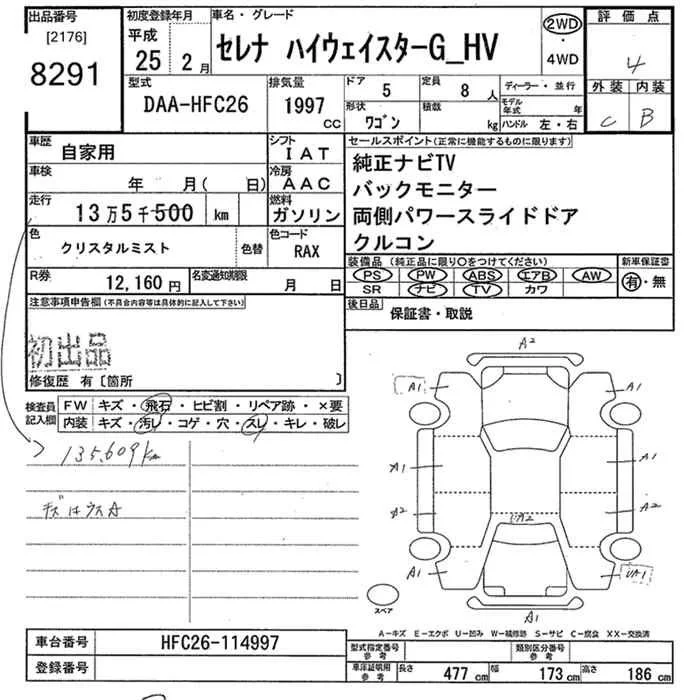 出品番号
[2176]
8291
初度登録年月
平成
25 2 月
車名・グレード
セレナ ハイウェイスターG_HV
2WD
・
4WD
評価点
4
外装 内装
C B
型式
DAA-HFC26
排気量
1997 CC
ドア 5
定員 8 人
形状 ワゴン
積載 kg
ディーラー・並行
モデル年式 年
ハンドル 左・右
車歴 自家用
シフト IAT
車検 年 月( 日)
冷房 AAC
走行 13 万 5 千 500 km
燃料 ガソリン
色 クリスタルミスト 色替
色コード RAX
R券 12,160 円
名変通知期限 月 日
セールスポイント(正常に機能するものに限ります)
純正ナビTV
バックモニター
両側パワースライドドア
クルコン
装備品 (純正品に限り○をつけてください)
PS PW ABS エアB AW
SR ナビ TV カワ
新車保証書
有・無
後日品 保証書・取説
注意事項申告欄(不具合内容等は具体的に記入して下さい)
初出品
修復歴 有〔箇所 〕
検査員記入欄
FW キズ・飛石・ヒビ割・リペア跡・×要
内装 キズ・汚レ・コゲ・穴・スレ・キレ・破レ
135,609km
キズはウスA
A2
A1 A1
A1 A1
A2 A2
A2
A1 UA1
A1
スペア
A-キズ E-エクボ U-凹み W-補修跡 S-サビ C-腐食 XX-交換済
車台番号 HFC26-114997
登録番号
型式指定番号 参考
類別区分番号 参考
車庫証明用 参考 長さ 477 cm 幅 173 cm 高さ 186 cm